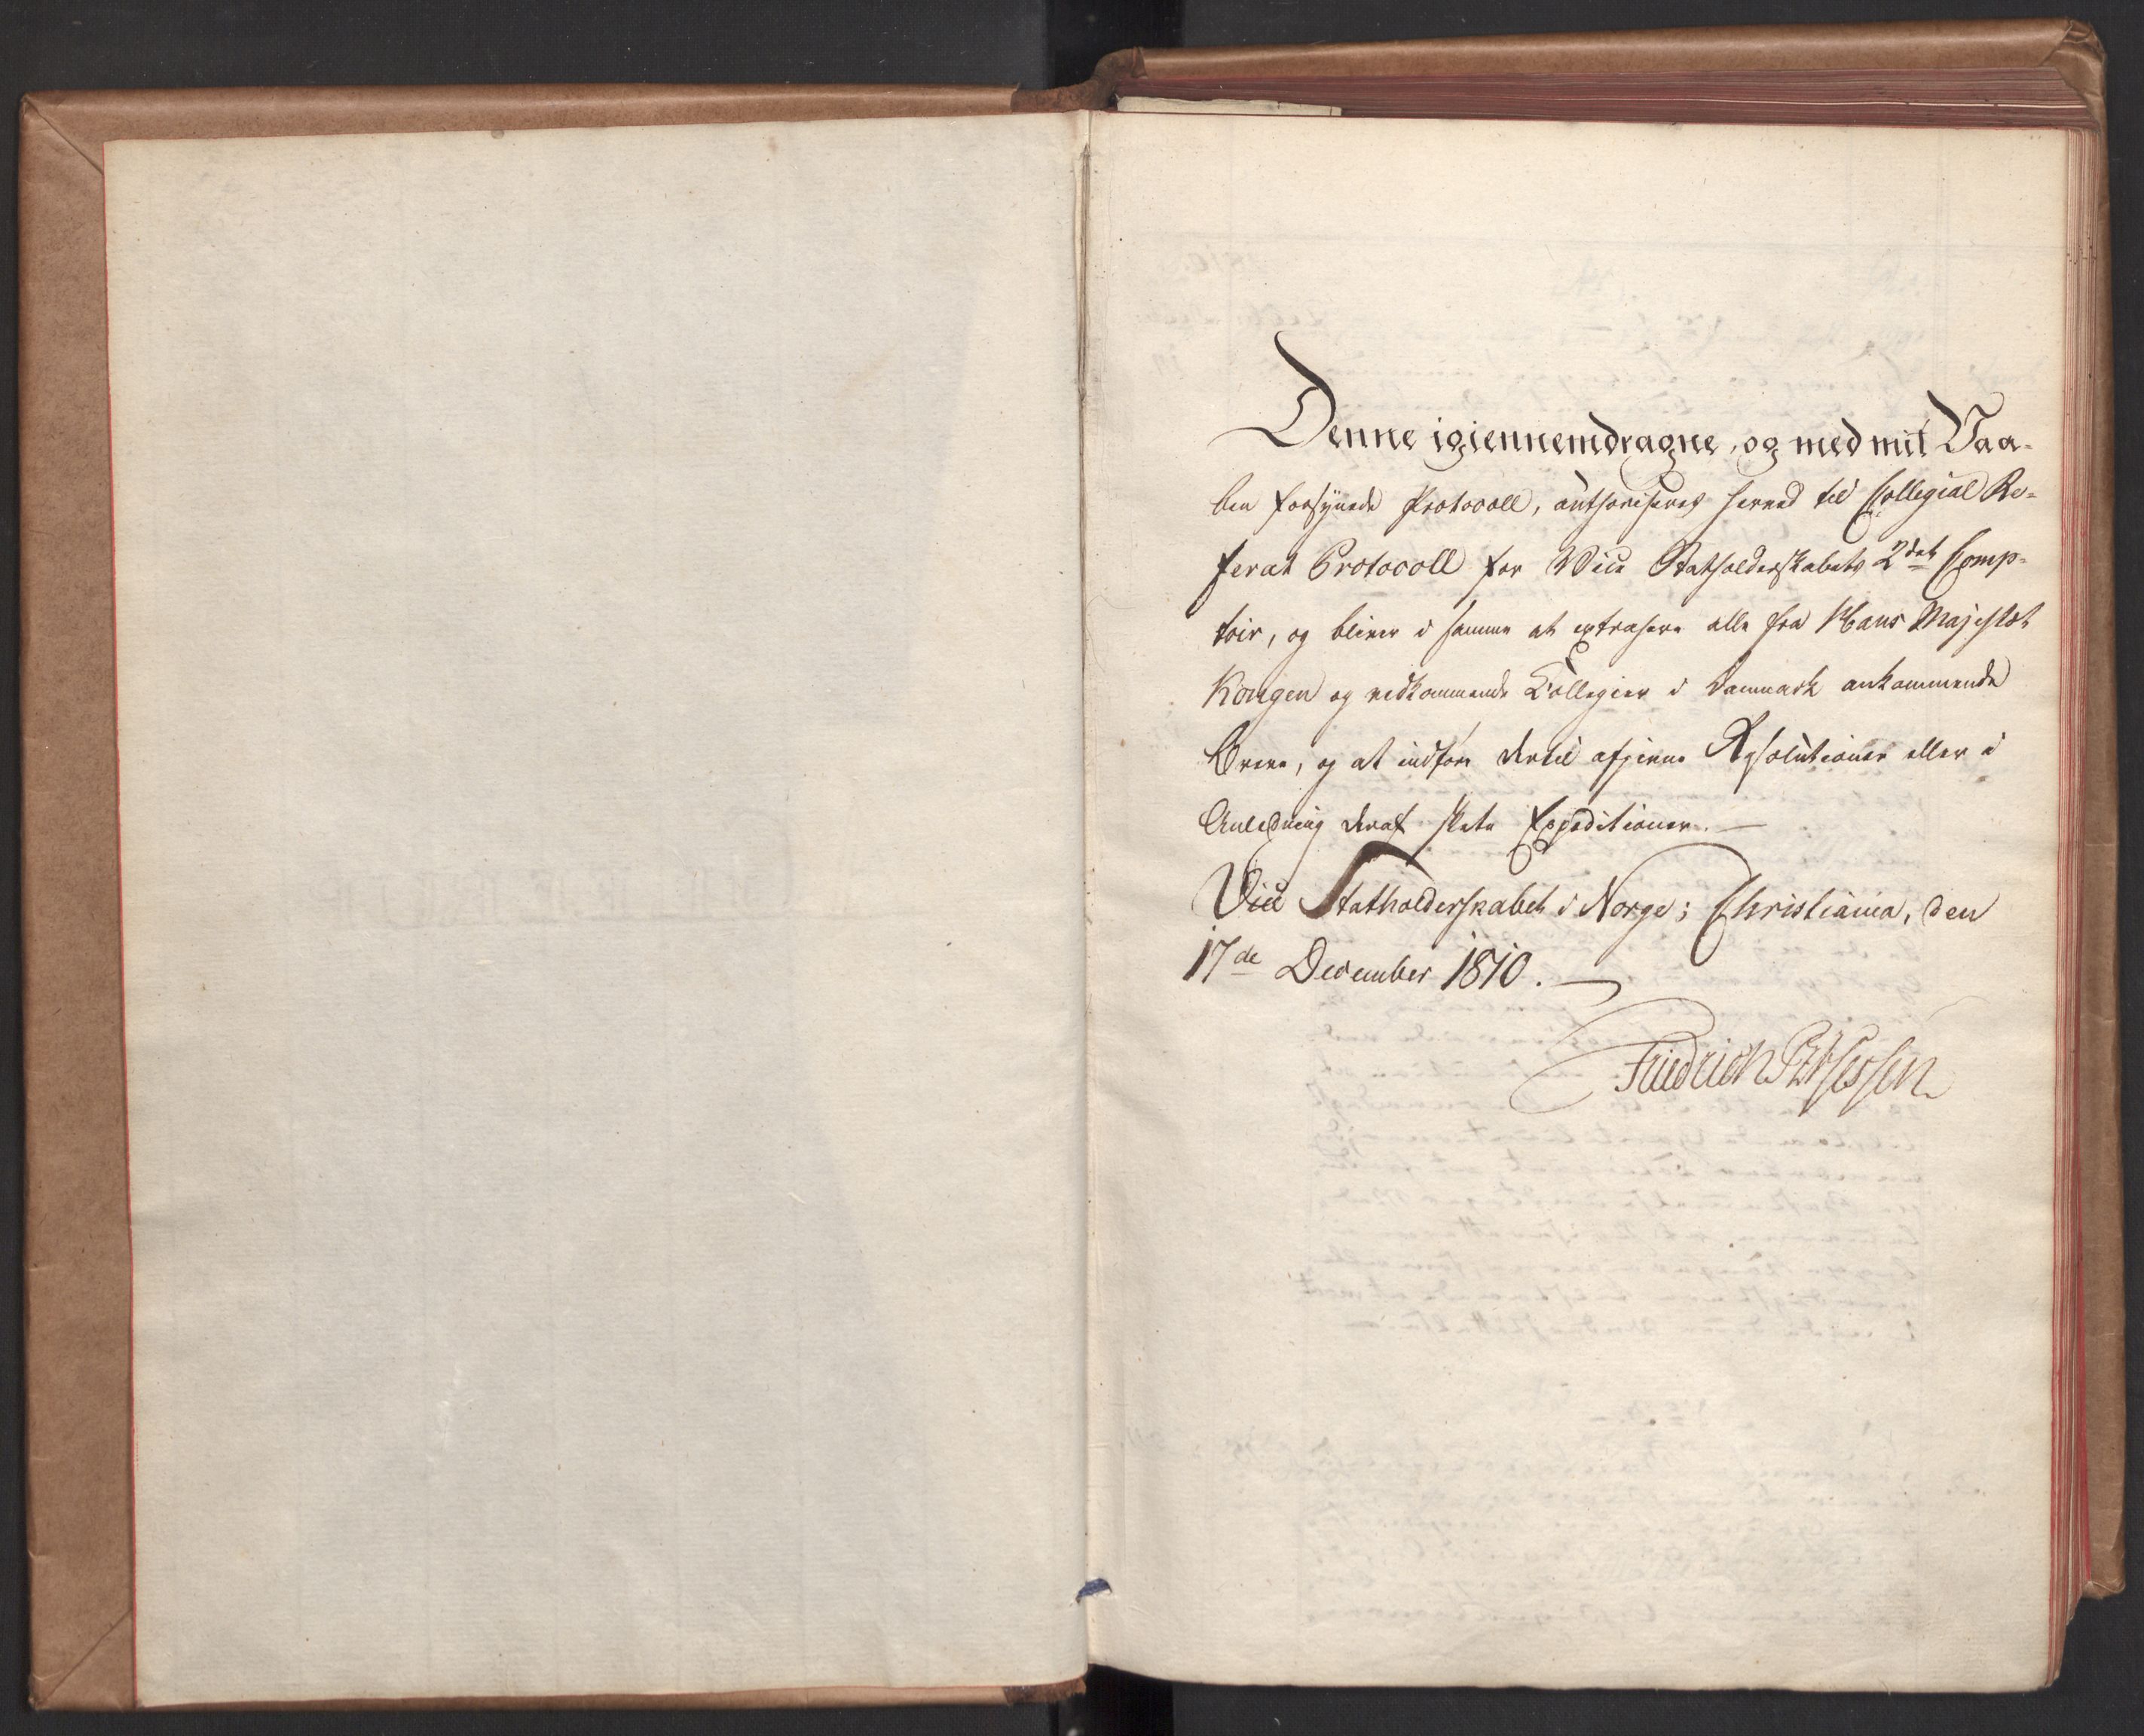 Denne igiennemdragne, og med mit Vaa-
ben forsynede Protocoll, authoriseres herved til Collegial Re-
ferat Protocoll for Vice Statholderskabets 2det Comp-
toir, og bliver i samme at extrahere alle fra Hans Majestæt
Kongen og vedkommende Collegier i Danmark ankommende
Breve, og at indføre dertil afgivne Resolutioner eller i
Anledning deraf skete Expeditioner. —
Vice Statholderskabet i Norge; Christiania, den
17de December 1810. —
Friedrich PzHessen